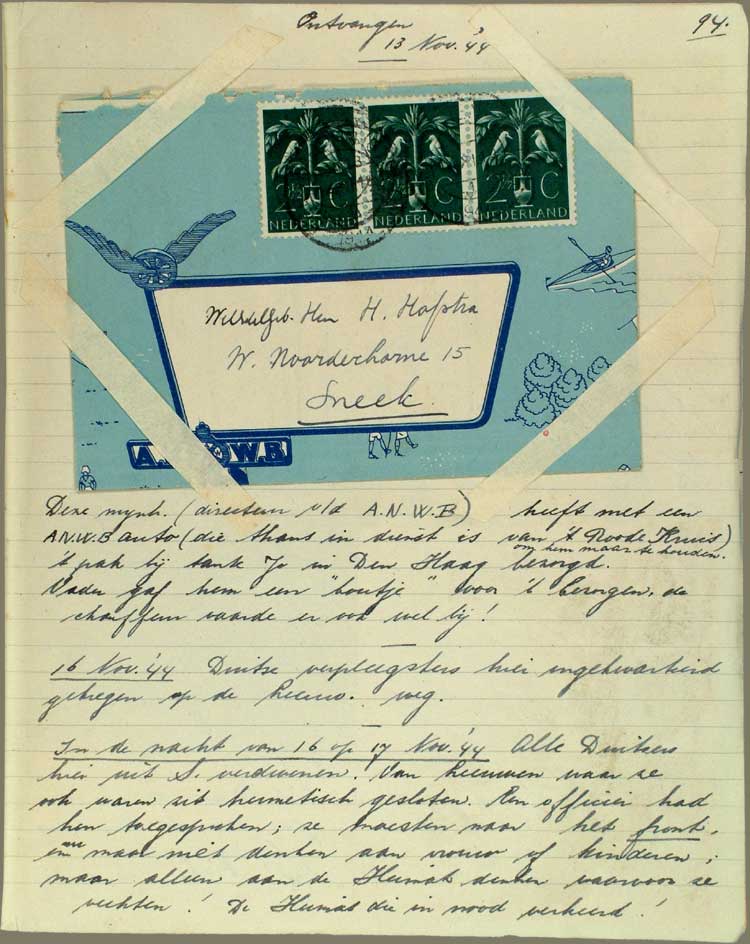 Ontvangen
13 Nov. '44
94.
2½ C 2½ C 2½ C
NEDERLAND NEDERLAND NEDERLAND
WelEdelGeb. Heer H. Hofstra
W. Noorderhorne 15
Sneek.
A.N.W.B
Deze mynh. (directeur v/d A.N.W.B) heeft met een
A.N.W.B auto (die thans in dienst is van 't Roode Kruis)
om hem maar te houden.
't pak bij tante Jo in Den Haag bezorgd.
Vader gaf hem een "boutje" voor 't bezorgen, de
chauffeur vaarde er ook wel bij!
16 Nov. '44 Duitse verpleegsters hier ingekwartierd
gekregen op de Leeuw. weg.
In de nacht van 16 op 17 Nov. '44 Alle Duitsers
hier uit S. verdwenen. Van Leeuwen waar ze
ook waren zit hermetisch gesloten. Een officier had
hen toegesproken; ze moesten naar het front,
en nu maar niet denken aan vrouw of kinderen;
maar alleen aan de Heimat denken waarvoor ze
vechten! De Heimat die in nood verkeerd!